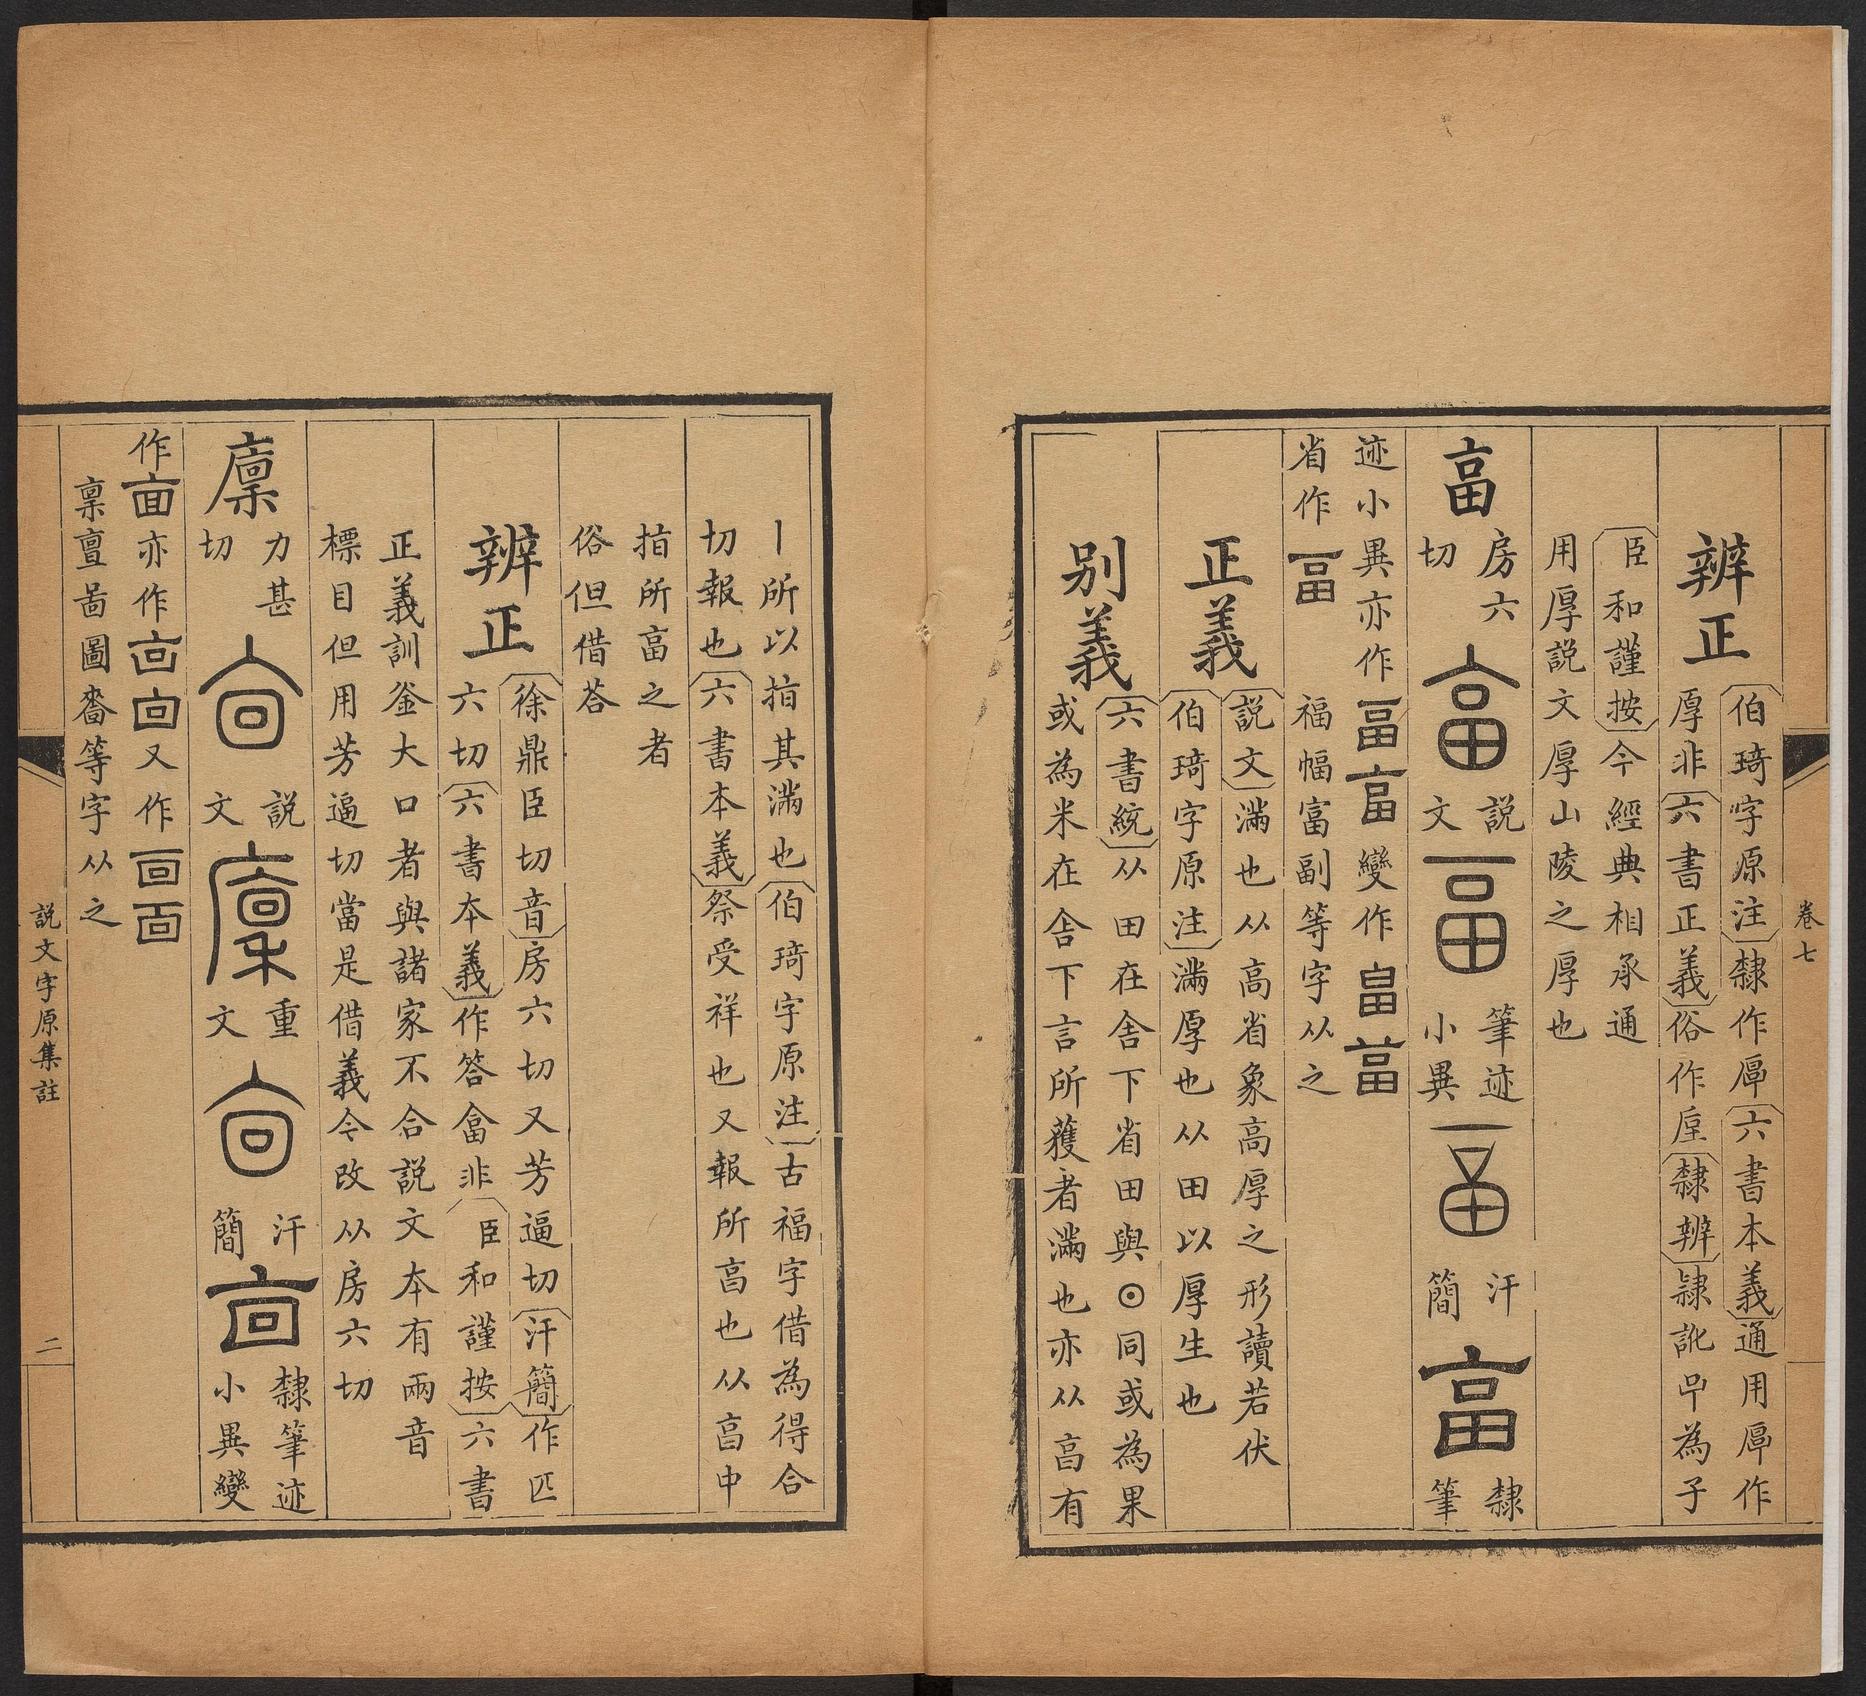 卷七
辨正
伯琦字原注隸作厚六書本義通用厚作
厚非六書正義俗作垕隸辨隸訛㫗為子
臣和謹按今經典相承通
用厚説文厚山陵之厚也
畗
房六切
説文
筆迹小異
汗簡
隸筆
迹小異亦作
變作
省作
福幅富副等字从之
正義
説文滿也从高省象高厚之形讀若伏
伯琦字原注滿厚也从田以厚生也
別義
六書統从田在舍下省田與⊙同或為果
或為米在舍下言所獲者滿也亦从畗有
丨所以指其滿也伯琦字原注古福字借為得合
切報也六書本義祭受祥也又報所畗也从畗中
指所畗之者
俗但借荅
辨正
徐鼎臣切音房六切又芳逼切汗簡作匹
六切六書本義作答畣非臣和謹按六書
正義訓釜大口者與諸家不合説文本有兩音
標目但用芳逼切當是借義今改从房六切
廩
力甚切
説文
重文
汗簡
隸筆迹
小異變
作
亦作
又作
稟亶啚圖嗇等字从之
説文字原集註
二